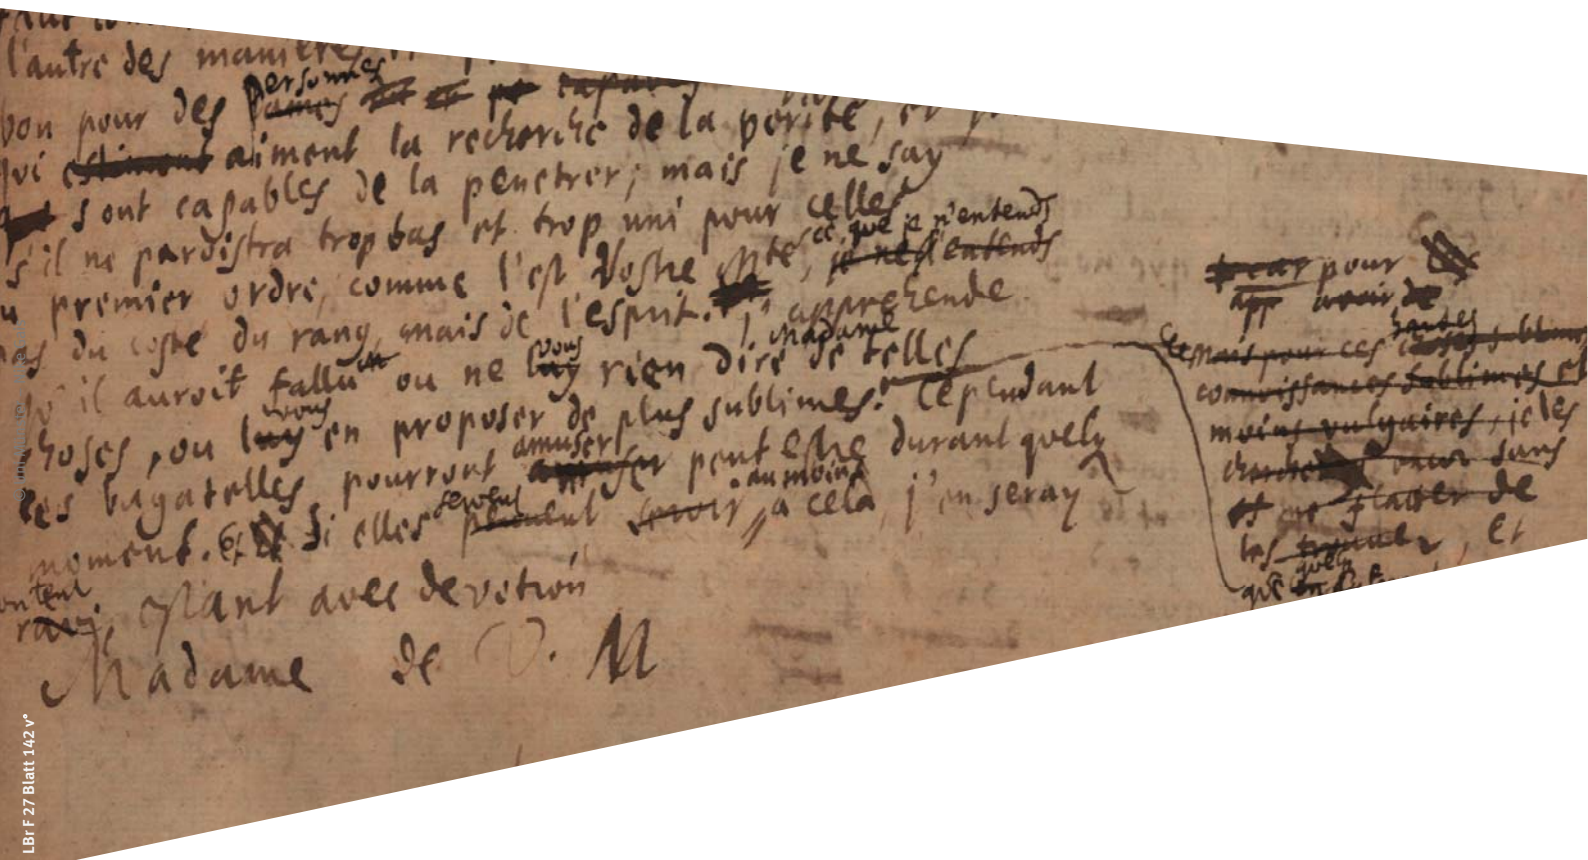 l'autre des manieres
bon pour des personnes
qui estiment aiment la recherche de la verité, et
sont capables de la penetrer; mais je ne say
s'il ne paroistra trop bas et trop uni pour celles
premier ordre, comme l'est Vostre Mté, ce que je n'entends je ne l'entends
pas du costé du rang, mais de l'esprit. apprehende
qu'il auroit fallu ou ne vous luy rien dire Madame de telles
choses, ou vous luy en proposer de plus sublimes. Cependant
ces bagatelles pourront amuser amuser peut estre durant quelq
moment. Et si elles servent peuvent servir au moins à cela, j'en seray
content ravi, estant avec devotion
Madame de V. M
car pour
app avoir de
mais pour ces hautes choses sublimes
connoissances sublimes et
moins vulgaires, je les
cherche encor sans
et me flatter de
les trouver, et
que quelq en
LBr F 27 Blatt 142 v°